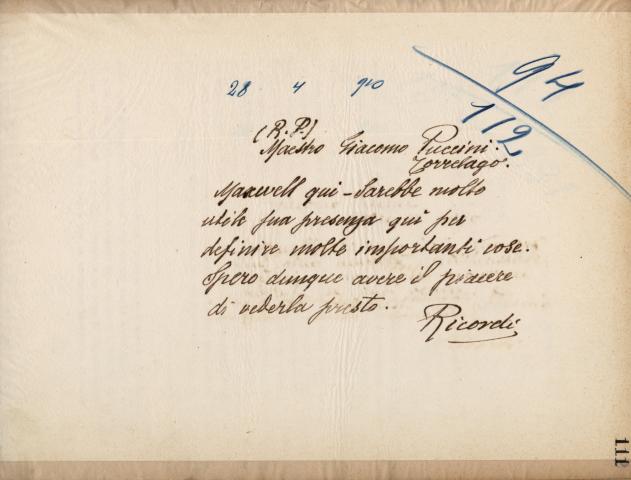 28 4 910
94
112
(R. P.)
Maestro Giacomo Puccini.
Torrelago.
Maxwell qui - Sarebbe molto
utile sua presenza qui per
definire molte importanti cose.
Spero dunque avere il piacere
di vederla presto.
Ricordi
111